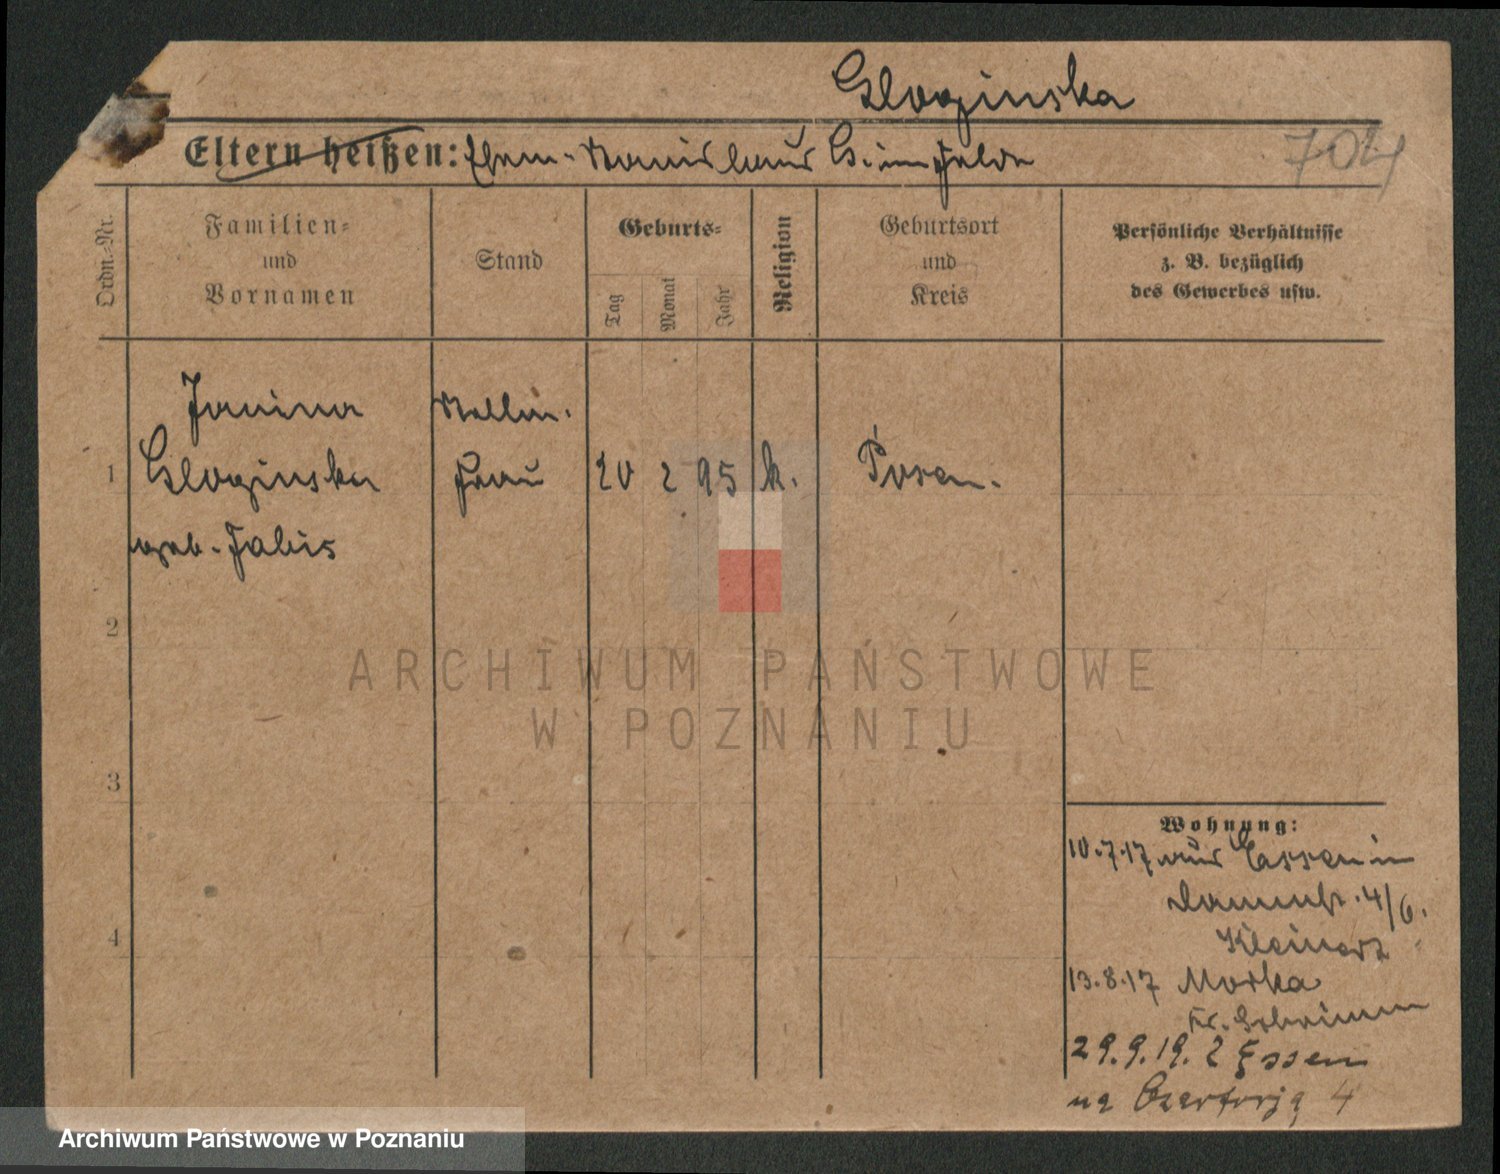 Glozinska
Eltern heißen: Ehem. Stanislaus G. im Felde
704
Ordn.-Nr.
Familien-
und
Vornamen
Stand
Geburts-
Tag
Monat
Jahr
Religion
Geburtsort
und
Kreis
Persönliche Verhältnisse
z. B. bezüglich
des Gewerbes usw.
Janina
Glozinska
geb. Jabis
Frau
1
20 2 95 k. Posen.
2
3
4
ARCHIWUM PAŃSTWOWE
W POZNANIU
Wohnung:
10.7.17 aus Essen in
Dammstr. 4/6.
Kleinert
13.8.17 Morka
Kr. Schrimm
29.9.19. z Essen
na Czartorją 4
Archiwum Państwowe w Poznaniu